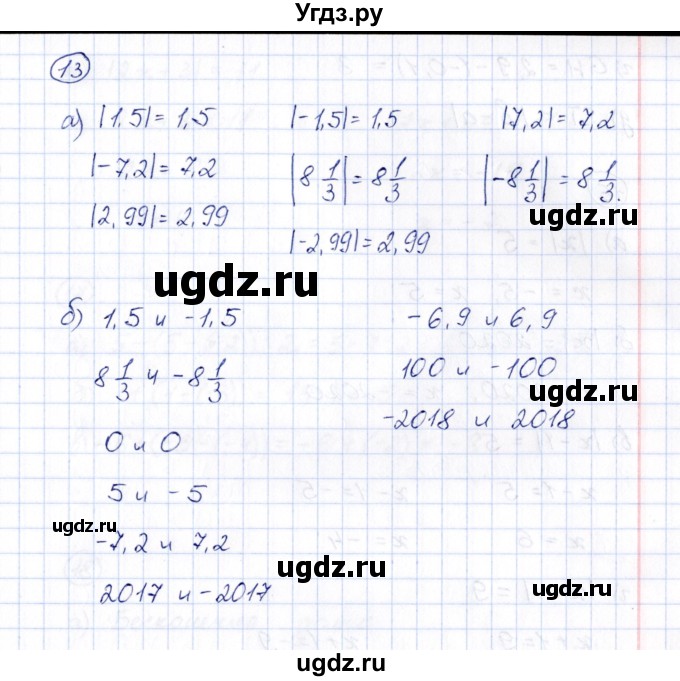 Угдз.ру
13
а) |1,5| = 1,5 |-1,5| = 1,5 |7,2| = 7,2
|-7,2| = 7,2 |8 1/3| = 8 1/3 |-8 1/3| = 8 1/3.
|2,99| = 2,99 |-2,99| = 2,99
ugdz.ru
ugdz.ru
б) 1,5 и -1,5 -6,9 и 6,9
8 1/3 и -8 1/3 100 и -100
0 и 0 -2018 и 2018
5 и -5
ugdz.ru
-7,2 и 7,2
ugdz.ru
2017 и -2017
ugdz.ru
ugdz.ru